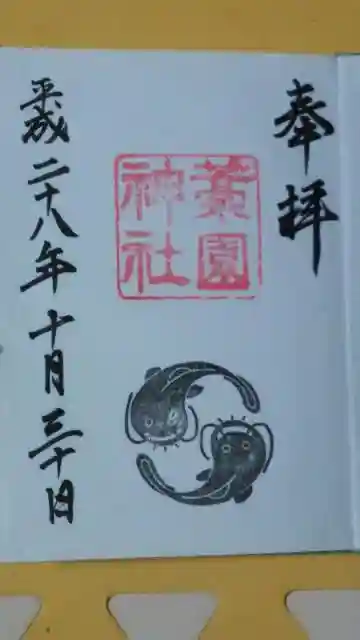 奉拝
藁園
神社
平成二十八年十月三十日